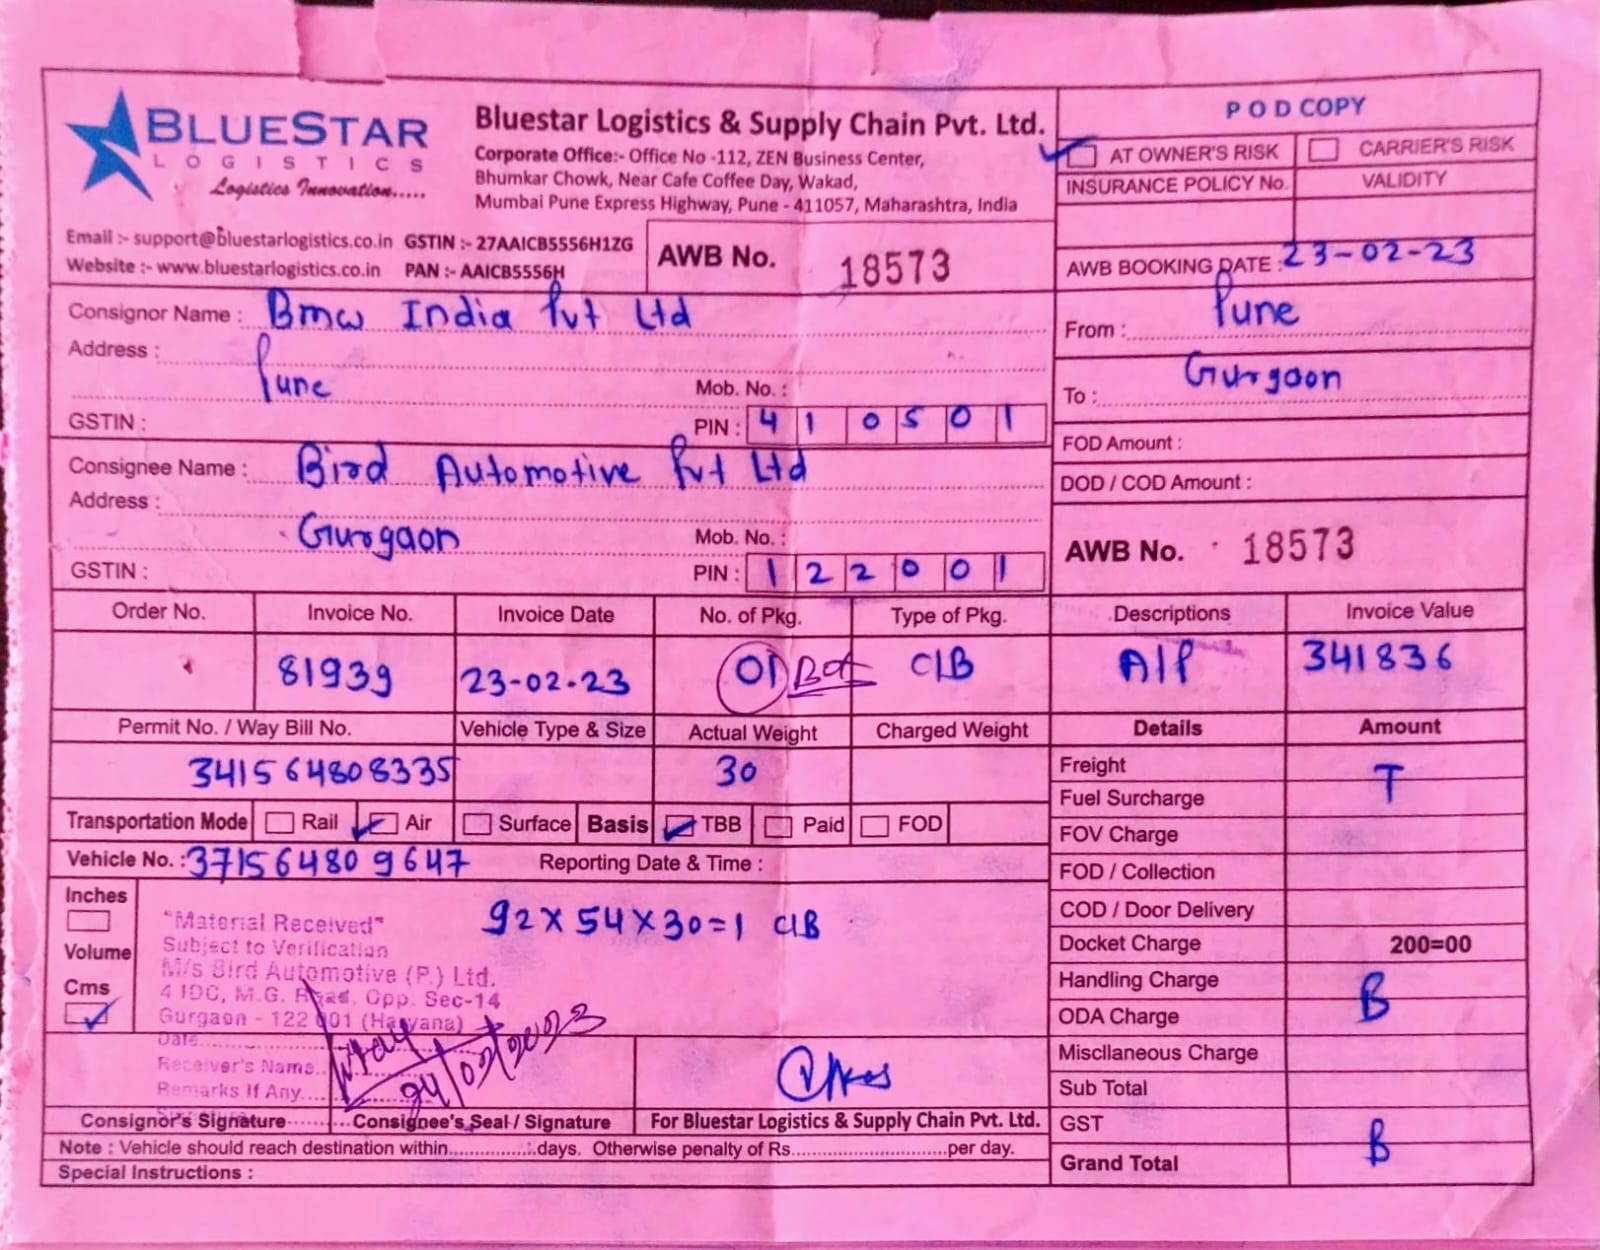 BLUESTAR
LOGISTICS
Logistics Innovation.....
Bluestar Logistics & Supply Chain Pvt. Ltd.
Corporate Office:- Office No -112, ZEN Business Center,
Bhumkar Chowk, Near Cafe Coffee Day, Wakad,
Mumbai Pune Express Highway, Pune - 411057, Maharashtra, India
Email :- support@bluestarlogistics.co.in GSTIN :- 27AAICB5556H1ZG
Website :- www.bluestarlogistics.co.in PAN :- AAICB5556H
AWB No. 18573
POD COPY
AT OWNER'S RISK CARRIER'S RISK
INSURANCE POLICY No. VALIDITY
AWB BOOKING DATE : 23-02-23
Consignor Name : Bmw India Pvt Ltd
Address :
Pune
Mob. No. :
GSTIN : PIN : 410501
From : Pune
To : Gurgaon
FOD Amount :
DOD / COD Amount :
Consignee Name : Bird Automotive Pvt Ltd
Address :
Gurgaon
Mob. No. :
GSTIN : PIN : 122001
AWB No. 18573
Order No. Invoice No. Invoice Date No. of Pkg. Type of Pkg. Descriptions Invoice Value
81939 23-02-23 01 C/B A/P 341836
Permit No. / Way Bill No. Vehicle Type & Size Actual Weight Charged Weight
341564808335 30
Transportation Mode Rail Air Surface Basis TBB Paid FOD
Vehicle No. : 371564809647 Reporting Date & Time :
Inches
Volume
Cms
92 X 54 X 30 = 1 C/B
"Material Received"
Subject to Verification
M/s Bird Automotive (P.) Ltd.
4 IDC, M.G. Road, Opp. Sec-14
Gurgaon - 122 001 (Haryana)
Date
Receiver's Name
Remarks If Any
24/02/2023
Consignor's Signature Consignee's Seal / Signature For Bluestar Logistics & Supply Chain Pvt. Ltd.
Note : Vehicle should reach destination within..............days. Otherwise penalty of Rs...........................per day.
Special Instructions :
Details Amount
Freight T
Fuel Surcharge
FOV Charge
FOD / Collection
COD / Door Delivery
Docket Charge 200=00
Handling Charge B
ODA Charge
Miscllaneous Charge
Sub Total
GST
B
Grand Total